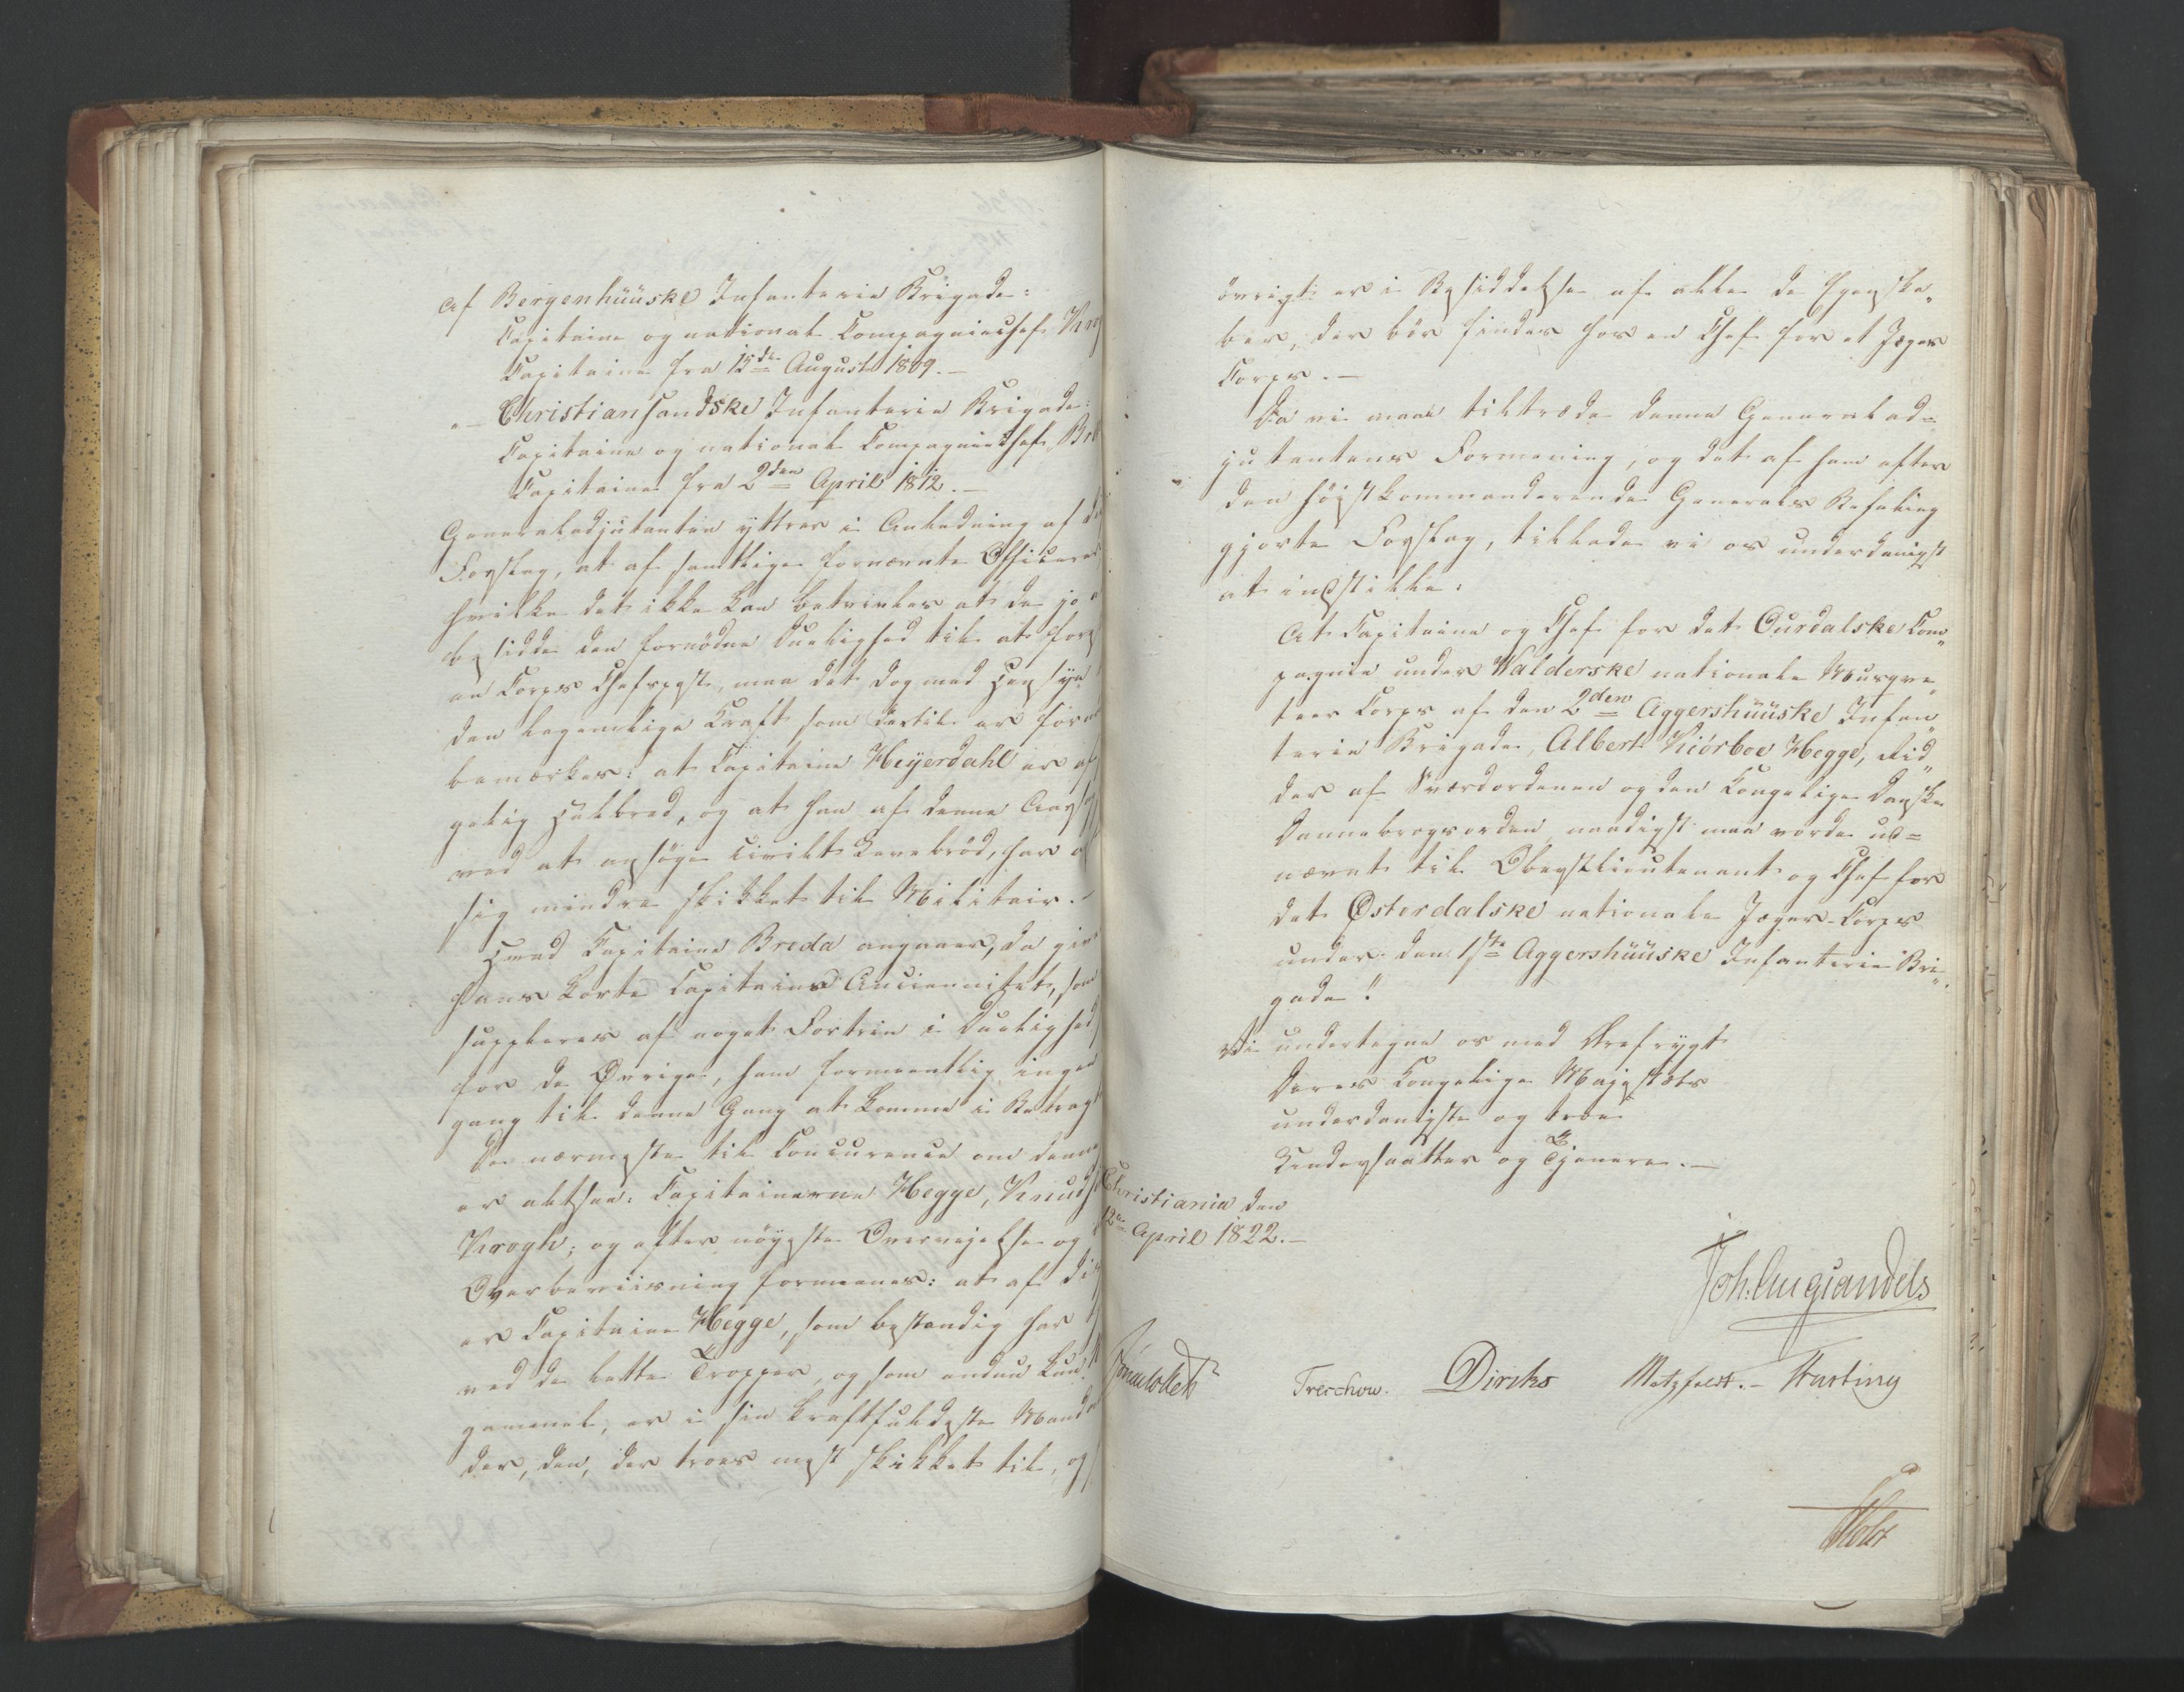 af Bergenhuuske Infanterie Brigade:
Capitaine og national Compagniechef
Capitaine fra 15de August 1809.-
"- Christiansandske Infanterie Brigade:
Capitaine og national Compagniechef
Capitaine fra 2den April 1812.-
Generaladjutanten yttrer i Anledning af
Forslag, at af samtlige fornævnte Officerer
hvilke det ikke kan betvivles at de jo
besidde den fornödne Duelighed til at
en Corps Chefspost, maa det dog med Hensyn
den legemlige Kraft som dertil er
bemærkes: at Capitaine Heyerdahl er
gelig, og at han af denne
ved at ansöge civilt Levebröd, har
sig mindre skikket til Militair.-
Hvad Capitaine Breda angaaer, da
hans korte Capitains Anciennitet, som
suppleres af noget Fortrin i Duelighed
for de Øvrige, ham formeentlig ingen
gang til denne Gang at komme i
De nærmeste til Concurence om denne
er altsaa: Capitainerne Hegge,
Krogh; og efter nöyeste Overveielse og
Overbeviisning formeenes: at af
er Capitaine Hegge, som bestandig har
ved de lette Tropper, og som endnu kun
gammel, er i sin kraftfuldeste
der, den, der troes mest skikket til, og
övrigt er i Besiddelse af alle de Egenska-
ber, der bör findes hos en Chef for et Jæger
Corps.-
Da vi maae tiltræde denne Generalad-
jutantens Formening, og det af ham efter
den höystkommanderende Generals Befaling
gjorte Forslag, tillade vi os underdanigst
at indstille:
At Capitaine og Chef for det Ourdalske Com-
pagnie under Walderske nationale Musque-
teer Corps af den 2den Aggershuuske Infan-
terie Brigade, Albert Kiørboe Hegge, Rid-
der af Sværdordenen og den Kongelige Danske
Dannebrogsorden naadigst maa vorde ud-
nævnt til Oberstlieutenant og Chef for
det Østerdalske nationale Jæger-Corps
under den 1ste Aggershuuske Infanterie Bri-
gade!
Vi undertegne os med Ærefrygt
Deres Kongelige Majestæts
underdanigste og troe
Undersaatter og Tjenere.-
Christiania den
12te April 1822.-
Joh: Aug Sandels
Sommerfeldt
Treschow. Diriks Motzfeldt.- Fasting
Holst